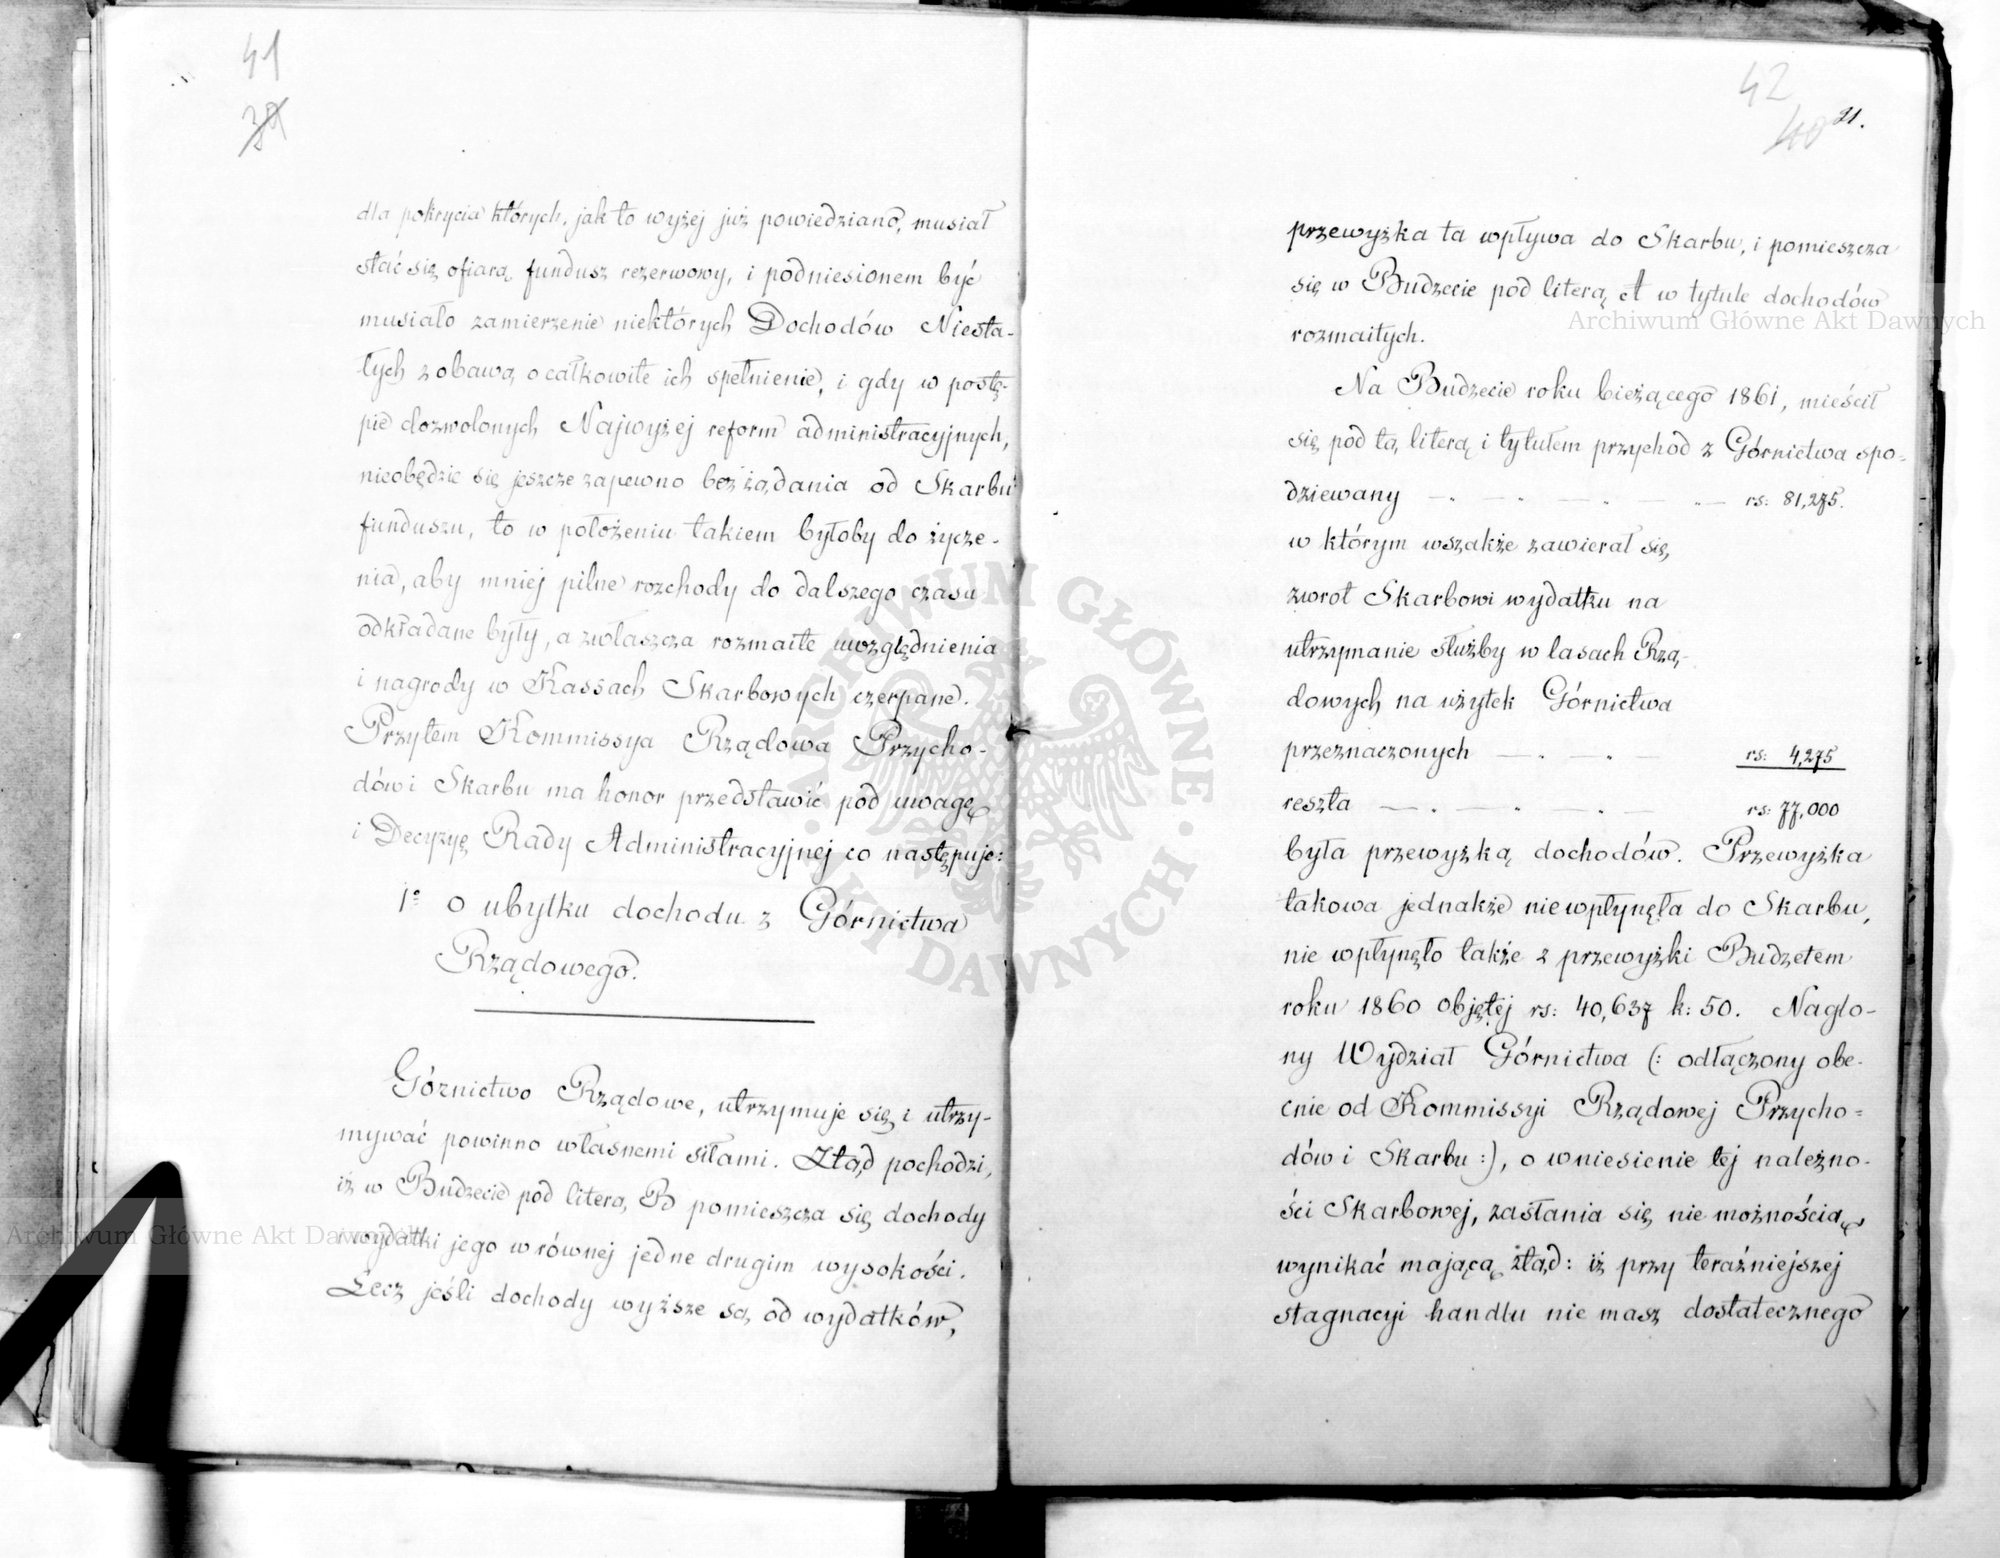 41
39
dla pokrycia których, jak to wyżej już powiedziano, musiał
stać się ofiarą fundusz rezerwowy, i podniesionem być
musiało zamierzenie niektórych Dochodów Niesta-
łych z obawą o całkowite ich spełnienie, i gdy w postę-
pie dozwolonych Najwyżej reform administracyjnych,
nieobędzie się jeszcze zapewno bez żądania od Skarbu
funduszu, to w położeniu takiem byłoby do życze-
nia, aby mniej pilne rozchody do dalszego czasu
odkładane były, a zwłaszcza rozmaite uwzględnienia
i nagrody w Kassach Skarbowych czerpane.
Przytem Kommissya Rządowa Przycho-
dów i Skarbu ma honor przedstawić pod uwagę
i Decyzyę Rady Administracyjnej co następuje:
1º o ubytku dochodu z Górnictwa
Rządowego.
Górnictwo Rządowe, utrzymuje się i utrzy-
mywać powinno własnemi siłami. Ztąd pochodzi,
iż w Budżecie pod literą B pomieszcza się dochody
i wydatki jego w równej jedne drugim wysokości.
Lecz jeśli dochody wyższe są od wydatków,
42
40 21.
przewyżka ta wpływa do Skarbu, i pomieszcza
się w Budżecie pod literą A w tytule dochodów
rozmaitych.
Na Budżecie roku bieżącego 1861, mieścił
się pod tą literą i tytułem przychód z Górnictwa spo-
dziewany — . — . — . — . — rs: 81,275.
w którym wszakże zawierał się
zwrot Skarbowi wydatku na
utrzymanie służby w lasach Rzą-
dowych na użytek Górnictwa
przeznaczonych — . — . — rs: 4,275
reszta — . — . — . — rs: 77,000
była przewyżką dochodów. Przewyżka
takowa jednakże niewpłynęła do Skarbu,
nie wpłynęło także z przewyżki Budżetem
roku 1860 objętej rs: 40,637 k: 50. Naglo-
ny Wydział Górnictwa (: odłączony obe-
cnie od Kommissyi Rządowej Przycho-
dów i Skarbu :), o wniesienie tej należno-
ści Skarbowej, zasłania się nie możnością,
wynikać mającą ztąd: iż przy teraźniejszej
stagnacyi handlu nie masz dostatecznego
Archiwum Główne Akt Dawnych
Archiwum Główne Akt Dawnych
ARCHIWUM GŁÓWNE · AKT DAWNYCH ·